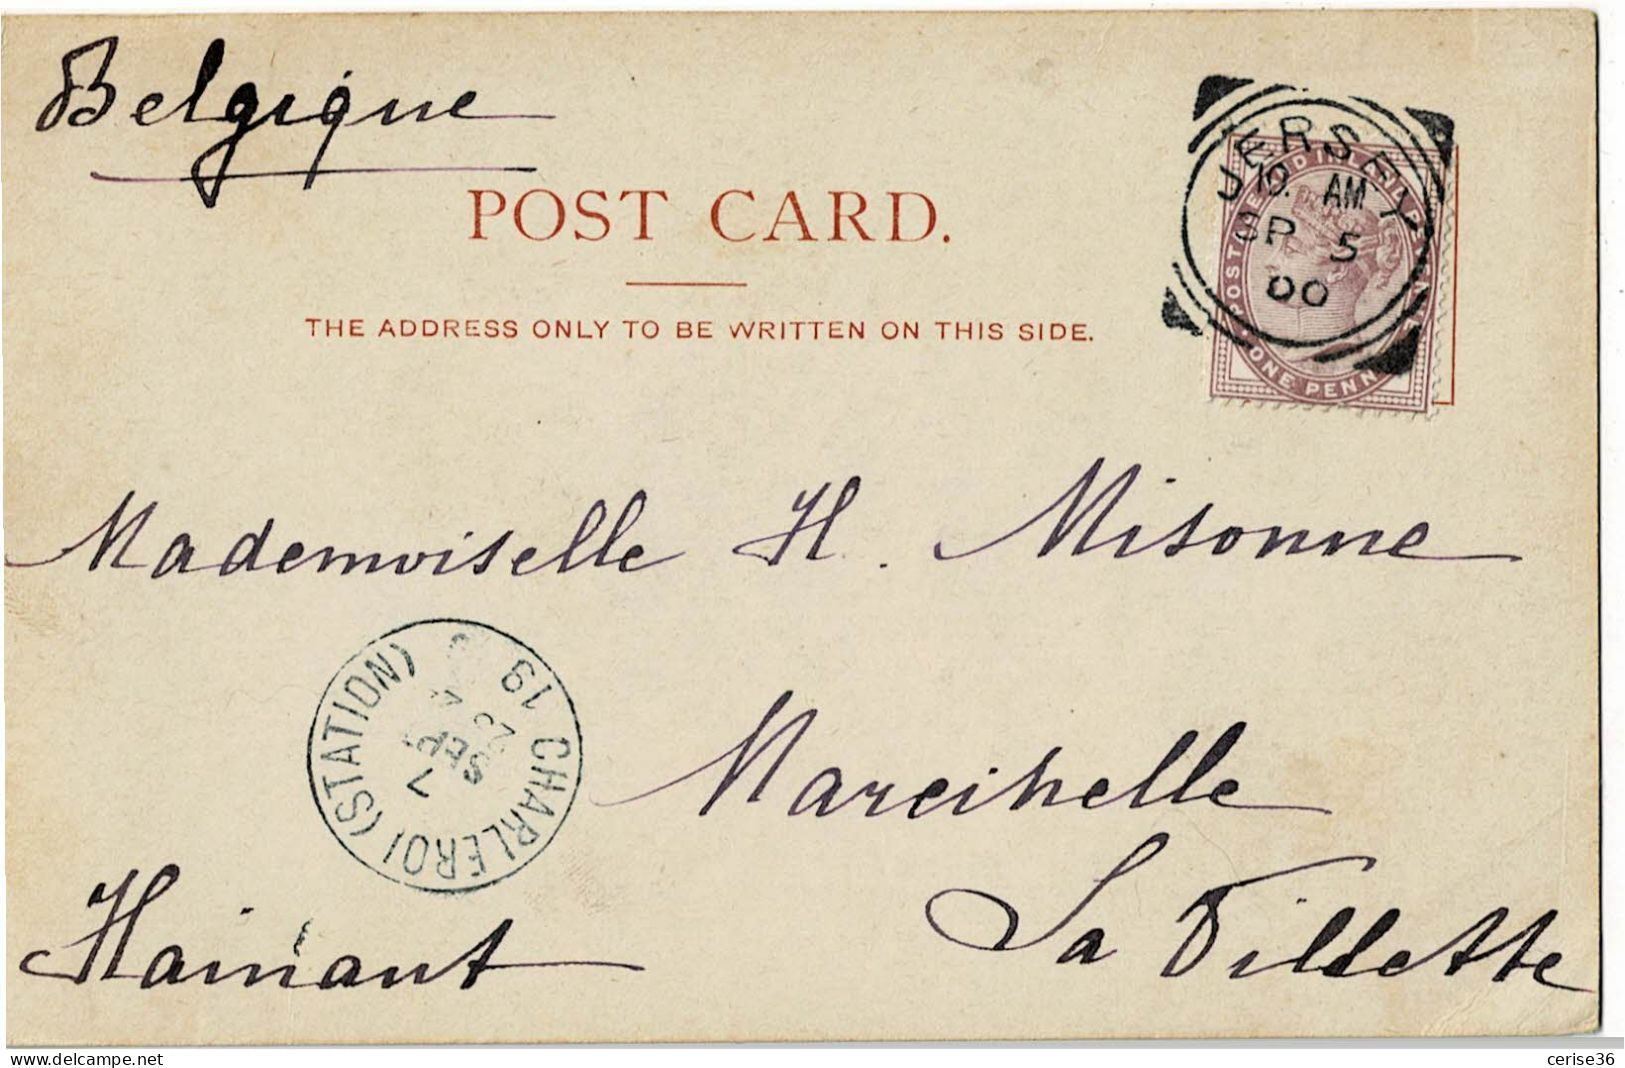 Belgique
POST CARD.
THE ADDRESS ONLY TO BE WRITTEN ON THIS SIDE.
JERSEY
10. AM
SP 5
00
POSTAGE AND INLAND REVENUE
ONE PENNY
Mademoiselle H. Misonne
CHARLEROI (STATION)
19
7
SEPT
Marcinelle
Hainaut
La Villette
delcampe.net
cerise36